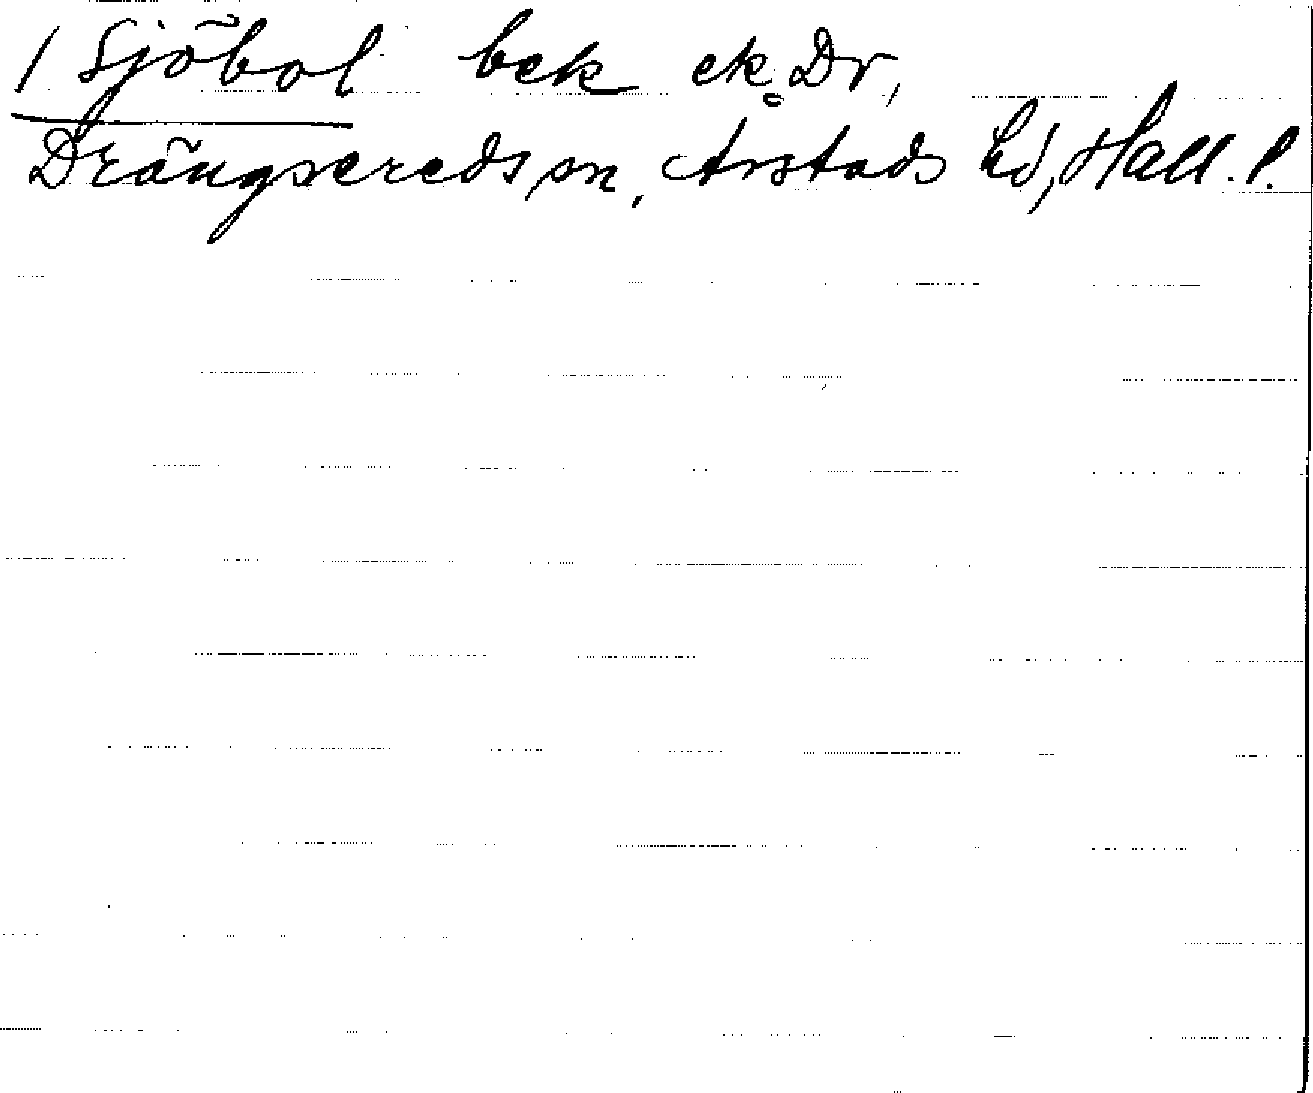 1 Sjöbol bek ek Dr,
Drängsereds sn, Årstads hd, Hall. l.